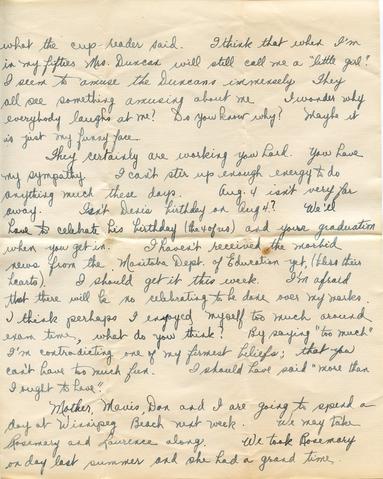 what the cup-reader said. I think that when I'm
in my fifties Mrs. Duncan will still call me a "little girl."
I seem to amuse the Duncans immensely They
all see something amusing about me I wonder why
everybody laughs at me? Do you know why? Maybe it
is just my funny face.
They certainly are working you hard. You have
my sympathy. I can't stir up enough energy to do
anything much these days. Aug. 4 isn't very far
away. Isn't Denis birthday on Aug 4? We'll
have to celebate his birthday (the 4 of us) and your graduation
when you get in. I haven't received the morbid
news from the Manitoba Dept. of Education yet, (bless their
hearts). I should get it this week. I'm afraid
that there will be no celebrating to be done over my marks.
I think perhaps I enjoyed myself too much around
exam time, what do you think? By saying "too much"
I'm contradicting one of my firmest beliefs; that you
can't have too much fun. I should have said "more than
I ought to have".
Mother, Mavis, Don and I are going to spend a
day at Winnipeg Beach next week. We may take
Rosemary and Laurence along. We took Rosemary
on day last summer and she had a grand time.